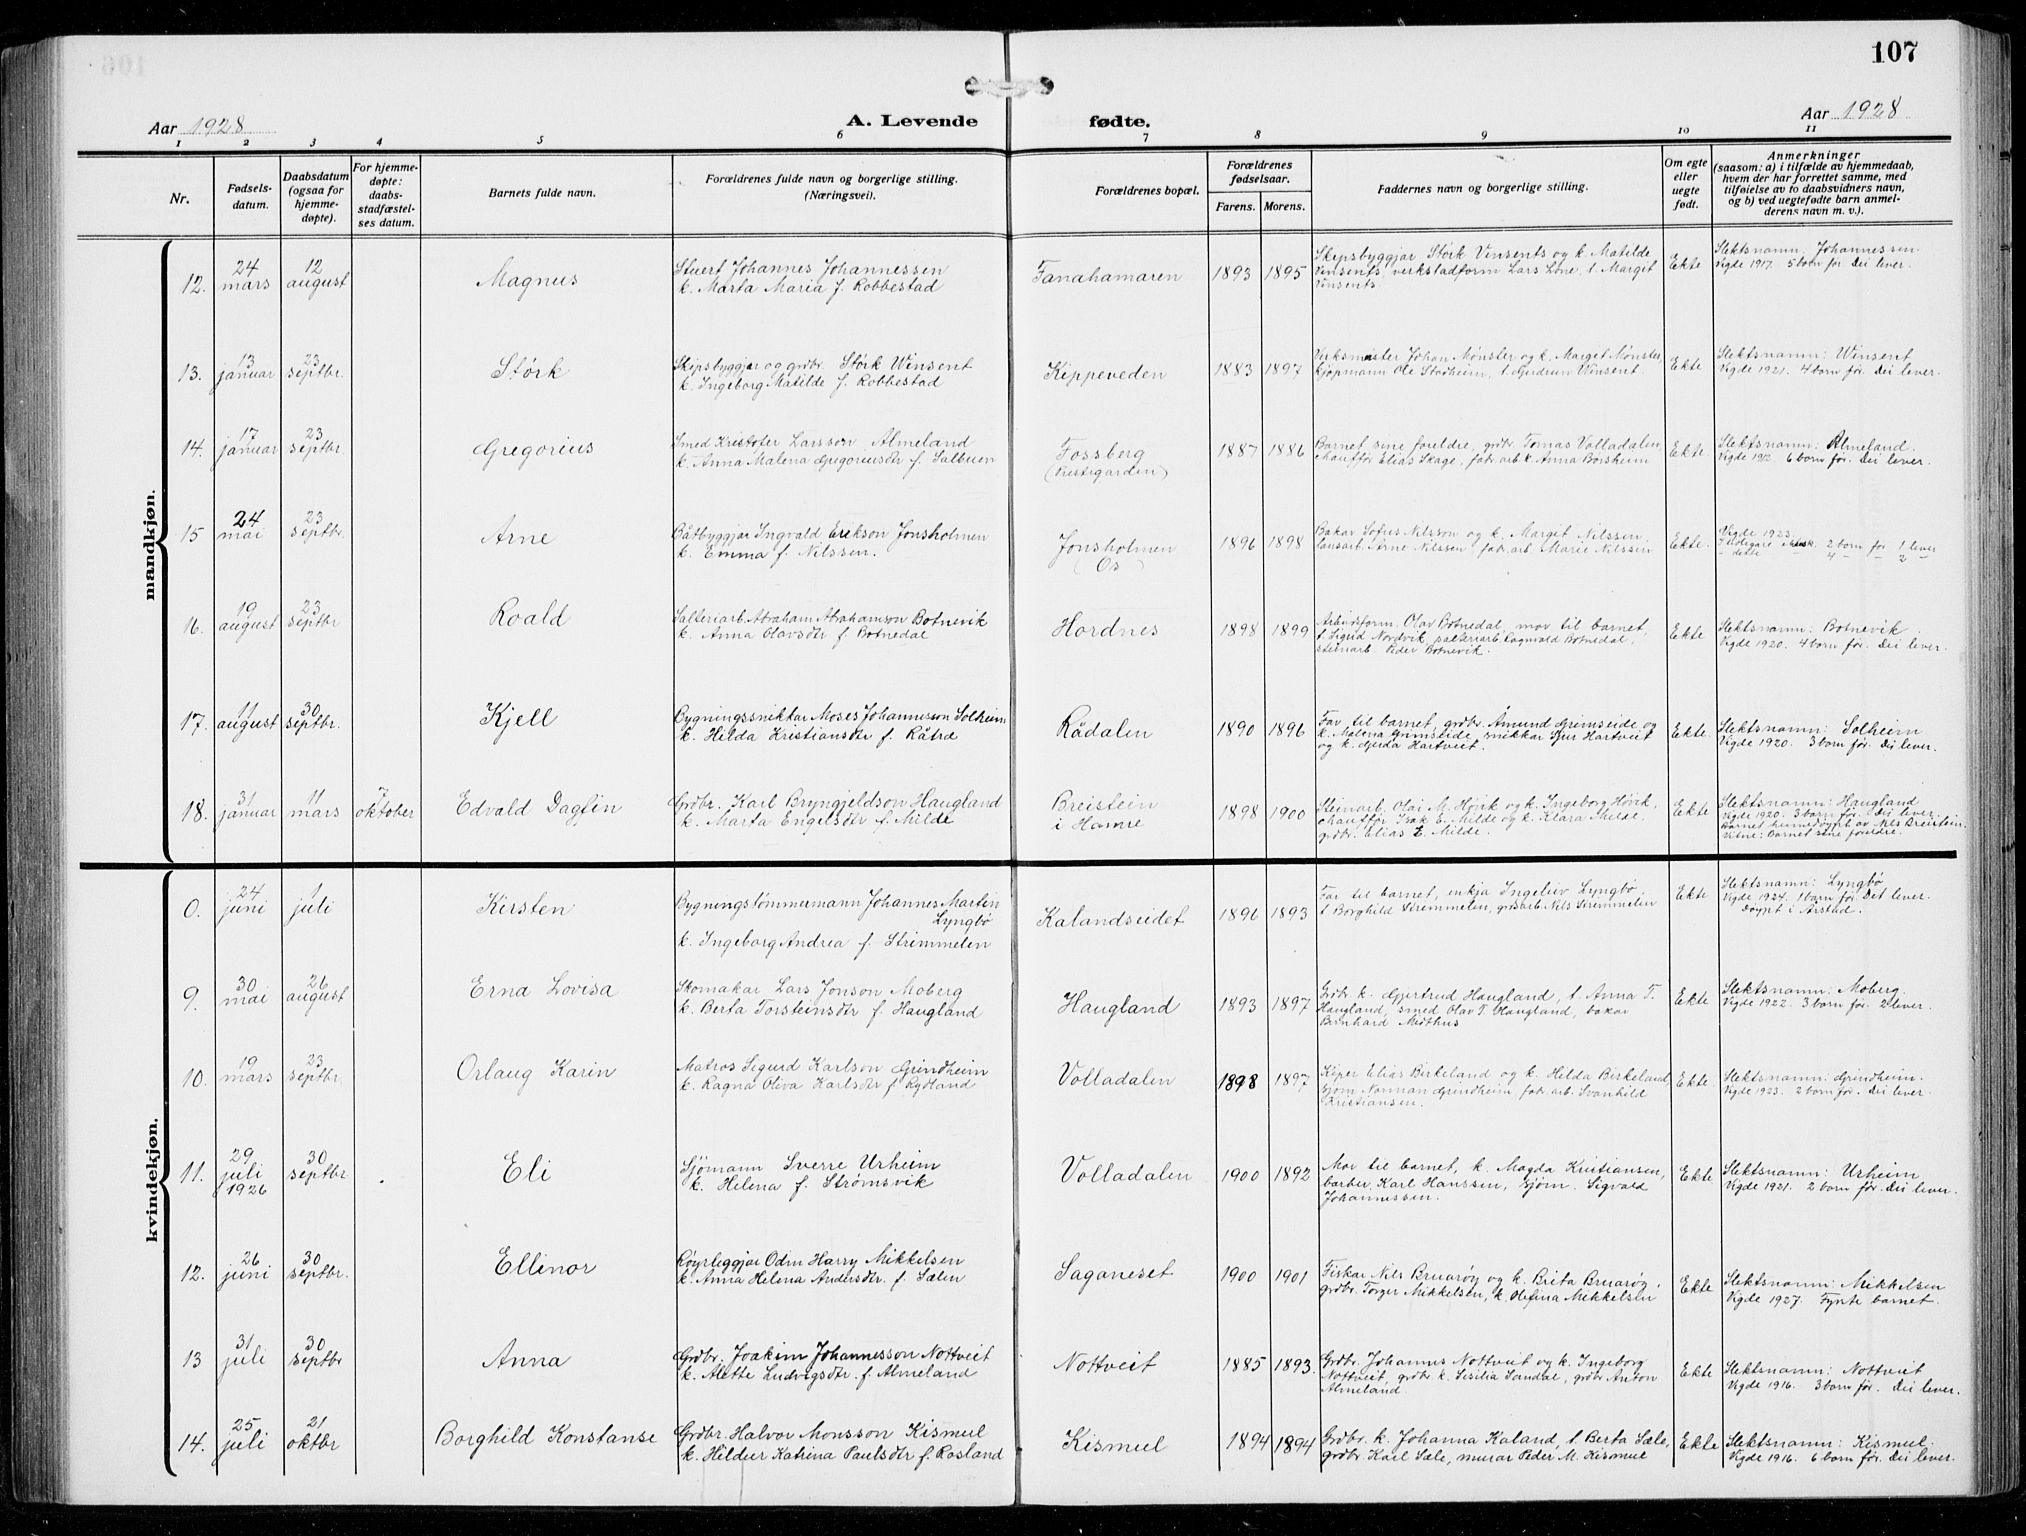 107
Aar 1928
A. Levende fødte.
Aar 1928
1 2 3 4 5 6 7 8 9 10 11
Nr.
Fødsels-
datum.
Daabsdatum
(ogsaa for
hjemme-
døpte).
For hjemme-
døpte:
daabs-
stadfæstel-
ses datum.
Barnets fulde navn.
Forældrenes fulde navn og borgerlige stilling.
(Næringsvei).
Forældrenes bopæl.
Forældrenes
fødselsaar.
Farens. Morens.
Faddernes navn og borgerlige stilling.
Om egte
eller
uegte
født.
Anmerkninger
(saasom: a) i tilfælde av hjemmedaab,
hvem der har forrettet samme, med
tilføielse av to daabsvidners navn,
og b) ved uegtefødte barn anmel-
derens navn m. v.).
mandkjøn.
12.
24
mars
12
august
Magnus
Stuert Johannes Johannessen
k. Marta Maria f. Robbestad
Fanahamaren
1893 1895
Skipsbyggjar Størk Vinsents og k. Matilde
Vinsents, verkstadform Lars Lone, t. Margit
Vinsents
Ekte
Slektsnamn: Johannessen.
Vigde 1917. 5 born før. Dei lever.
13.
13
januar
23
septbr.
Størk
Skipsbyggjar og grdbr. Størk Winsent
k. Ingeborg Matilde f. Robbestad
Kippeveden
1883 1897
Verksmeister Johan Mønster og k. Marget Mønster
kjøpmann Ole Stadheim, t. Gudrun Winsent.
Ekte
Slektsnamn: Winsent
Vigde 1921. 4 born før. Dei lever.
14.
17
januar
23
septbr.
Gregorius
Smed Kristofer Larsson Almeland
k. Anna Malena Gregoriusdtr f. Salbuen
Fossberg
(Prestegarden)
1887 1886
Barnet sine foreldre, grdbr. Tomas Volladalen,
chauffør Elias Skage, fabr. arb. k. Anna Børsheim
Ekte
Slektsnamn: Almeland.
Vigde 1912. 6 born før. Dei lever.
15
24
mai
23
septbr.
Arne
Båtbyggjar Ingvald Erikson Jonsholmen
k. Emma f. Nilssen.
Jonsholmen
(Os)
1896 1898
Bakar Sofus Nilsson og k. Margit Nilssen,
Arne Nilssen, fabr. arb. Marie Nilssen
Ekte.
Vigde 1923.
2 born før 1 lever
dette 4 - - 2 -
16.
19
august
23
septbr
Roald
Salteriarb. Abraham Abrahamson Botnevik
k. Anna Olavsdtr f. Botnedal
Hordnes
1898 1899
Arbeidsform. Olav Botnedal, mor til barnet,
t. Sigrid Nordvik, salteriarb. Ragnvald Botnedal,
steinarb Peder Botnevik.
Ekte
Slektsnamn: Botnevik.
Vigde 1920. 4 born før. Dei lever.
17.
11
august
30
septbr.
Kjell
Bygningssnikkar Moses Johannesson Solheim
k. Hilda Kristiansdtr f. Råtræ
Rådalen
1890 1896
Far til barnet, grdbr. Åmund Grimseide og
k. Malena Grimseide, snikkar Sjur Hartveit
og k. Gjerda Hartveit.
Ekte.
Slektsnamn: Solheim
Vigde 1920. 3 born før. Dei lever.
18.
31
januar
11
mars
7
oktober
Edvald Dagfin
Grdbr. Karl Bryngjeldson Haugland
k. Marta Engelsdtr f. Milde
Breistein
i Hamre
1898 1900
Steinarb. Olai M. Høvik og k. Ingeborg Høvik,
chauffør Isak E. Milde og k. Klara Milde,
grdbr. Elias E. Milde.
Ekte
Slektsnamn: Haugland
Vigde 1920. 3 born før. Dei lever.
Barnet heimedøypt av Nils Breistein.
Vitne: Barnet sine foreldre.
kvindekjøn.
0.
24
juni
1
juli
Kirsten
Bygningstømmermann Johannes Martin
Lyngbø
k. Ingeborg Andrea f. Strimmelen
Kalandseidet
1896 1893
Far til barnet, enkja Ingeleiv Lyngbø,
t. Borghild Strimmelen, grdsarb. Nils Strimmelen
Ekte
Slektsnamn: Lyngbø
Vigde 1924. 1 born før. Det lever.
Døypt i Årstad.
9.
30
mai
26
august
Erna Lovisa
Skomakar Lars Jonson Moberg
k. Berta Torsteinsdtr f. Haugland
Haugland
1893 1897
Grdbr k. Gjertrud Haugland, t. Anna T.
Haugland, smed Olav T. Haugland, bakar
Bernhard Midthus
Ekte
Slektsnamn: Moberg.
Vigde 1922. 3 born før. 2 lever.
10.
19
mars
23
septbr.
Orlaug Karin
Matros Sigurd Karlson Grindheim
k. Ragna Oliva Karlsdtr f. Rydland
Volladalen
1898 1897
Kiper Elias Birkeland og k. Hilda Birkeland,
sjøm. Norman Grindheim, fabr. arb. Svanhild
Kristiansen.
Ekte.
Slektsnamn: Grindheim.
Vigde 1923. 2 born før. Dei lever.
11.
29
juli
1926
30
septbr
Eli
Sjømann Sverre Urheim
k. Helena f. Strømsvik
Volladalen
1900 1892
Mor til barnet, k. Magda Kristiansen,
barber Karl Hanssen, sjøm. Sigvald
Johannessen.
Ekte
Slektsnamn: Urheim
Vigde 1921. 2 born før. Dei lever.
12.
26
juni
30
septbr.
Ellinor
Røyrleggjar Odin Harry Mikkelsen
k. Anna Helena Andersdtr. f. Sælen
Saganeset
1900 1901
Fiskar Nils Bruarøy og k. Brita Bruarøy.
grdbr. Torger Mikkelsen, k. Olefina Mikkelsen
Ekte
Slektsnamn: Mikkelsen
Vigde 1927. Fyrste barnet.
13
31
juli
30
septbr
Anna
Grdbr. Joakim Johannesson Nottveit
k. Alette Ludvigsdtr. f. Almeland
Nottveit
1885 1893.
Grdbr. Johannes Nottveit og k. Ingeborg
Nottveit, grdbr k. Sesilia Sandal, grdbr Anton
Almeland.
Ekte
Slektsnamn: Nottveit
Vigde 1916. 3 born før. Dei lever.
14.
25
juli
21
oktbr
Borghild Konstanse
Grdbr. Halvor Monsson Kismul
k. Hildur Katrina Paulsdtr f. Rosland
Kismul
1894 1894
Grdbr. k. Johanna Kaland, t. Berta Sæle,
grdbr Karl Sæle, murar Peder M. Kismul
Ekte
Slektsnamn: Kismul.
Vigde 1916. 6 born før. Dei lever.